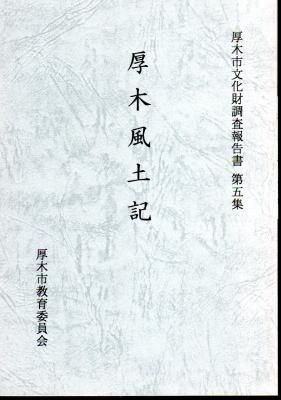 厚木市文化財調査報告書 第五集
厚木風土記
厚木市教育委員会